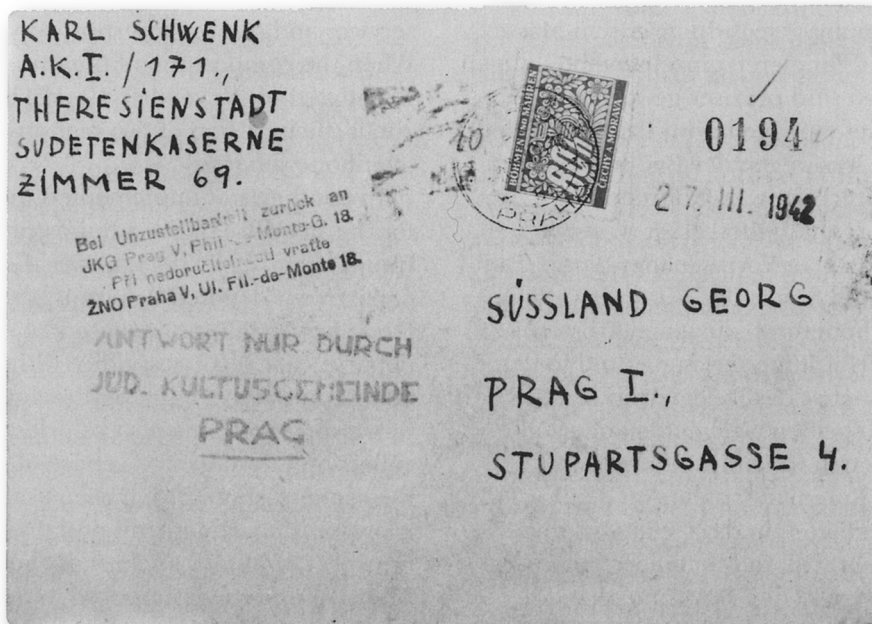 KARL SCHWENK
A.K.I. / 171.,
THERESIENSTADT
SUDETENKASERNE
ZIMMER 69.
Bei Unzustellbarkeit zurück an
JKG Prag V, Phil de Monte-G. 18.
Při nedoručitelnosti vraťte
ŽNO Praha V, Ul. Fil.-de-Monte 18.
ANTWORT NUR DURCH
JÜD. KULTUSGEMEINDE
PRAG
BÖHMEN UND MÄHREN
60
ČECHY A MORAVA
0194
27. III. 1942
SÜSSLAND GEORG
PRAG I.,
STUPARTSGASSE 4.